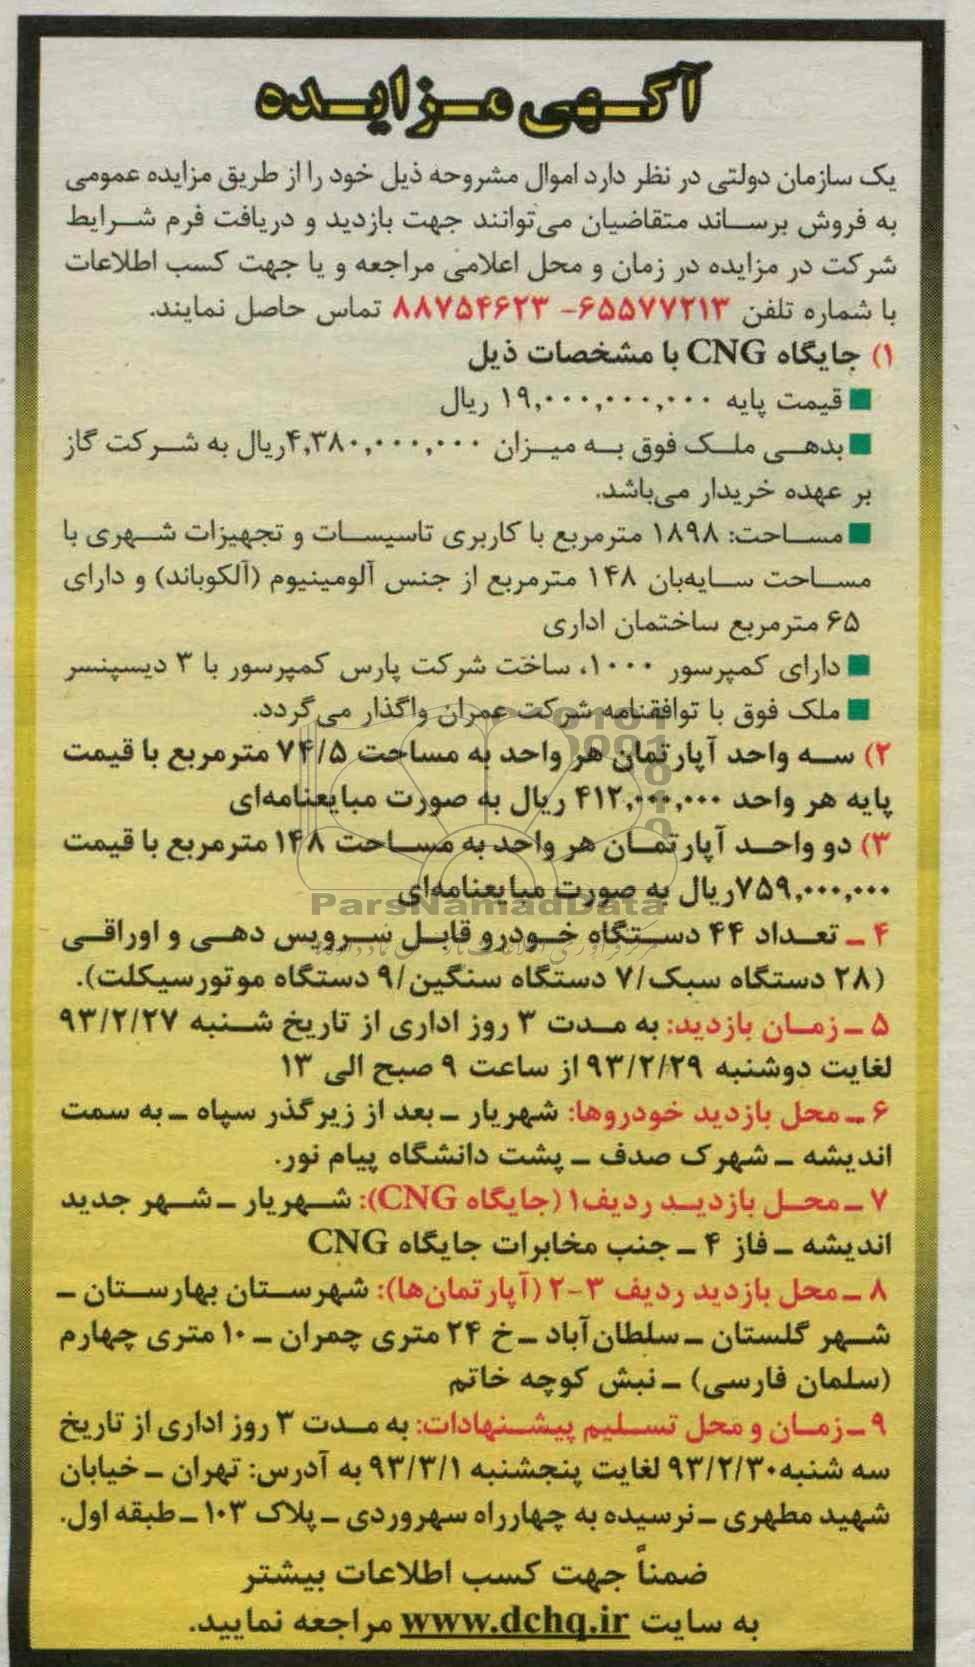 آگهی مزایده
یک سازمان دولتی در نظر دارد اموال مشروحه ذیل خود را از طریق مزایده عمومی
به فروش برساند متقاضیان می‌توانند جهت بازدید و دریافت فرم شرایط
شرکت در مزایده در زمان و محل اعلامی مراجعه و یا جهت کسب اطلاعات
با شماره تلفن ۶۵۵۷۷۲۱۳- ۸۸۷۵۴۶۲۳ تماس حاصل نمایند.
۱) جایگاه CNG با مشخصات ذیل
■ قیمت پایه ۱۹,۰۰۰,۰۰۰,۰۰۰ ریال
■ بدهی ملک فوق به میزان ۴,۳۸۰,۰۰۰,۰۰۰ریال به شرکت گاز
بر عهده خریدار می‌باشد.
■ مساحت: ۱۸۹۸ مترمربع با کاربری تاسیسات و تجهیزات شهری با
مساحت سایه‌بان ۱۴۸ مترمربع از جنس آلومینیوم (آلکوباند) و دارای
۶۵ مترمربع ساختمان اداری
■ دارای کمپرسور ۱۰۰۰، ساخت شرکت پارس کمپرسور با ۳ دیسپنسر
■ ملک فوق با توافقنامه شرکت عمران واگذار می‌گردد.
۲) سه واحد آپارتمان هر واحد به مساحت ۷۴/۵ مترمربع با قیمت
پایه هر واحد ۴۱۲,۰۰۰,۰۰۰ ریال به صورت مبایعنامه‌ای
۳) دو واحد آپارتمان هر واحد به مساحت ۱۴۸ مترمربع با قیمت
۷۵۹,۰۰۰,۰۰۰ریال به صورت مبایعنامه‌ای
ParsNamadData
۴ ـ تعداد ۴۴ دستگاه خودرو قابل سرویس دهی و اوراقی
(۲۸ دستگاه سبک/۷ دستگاه سنگین/۹ دستگاه موتورسیکلت).
۵ ـ زمان بازدید: به مدت ۳ روز اداری از تاریخ شنبه ۹۳/۲/۲۷
لغایت دوشنبه ۹۳/۲/۲۹ از ساعت ۹ صبح الی ۱۳
۶ ـ محل بازدید خودروها: شهریار ـ بعد از زیرگذر سپاه ـ به سمت
اندیشه ـ شهرک صدف ـ پشت دانشگاه پیام نور.
۷ ـ محل بازدید ردیف۱ (جایگاه CNG): شهریار ـ شهر جدید
اندیشه ـ فاز ۴ ـ جنب مخابرات جایگاه CNG
۸ ـ محل بازدید ردیف ۳-۲ (آپارتمان‌ها): شهرستان بهارستان ـ
شهر گلستان ـ سلطان‌آباد ـ خ ۲۴ متری چمران ـ ۱۰ متری چهارم
(سلمان فارسی) ـ نبش کوچه خاتم
۹ ـ زمان و محل تسلیم پیشنهادات: به مدت ۳ روز اداری از تاریخ
سه شنبه۹۳/۲/۳۰ لغایت پنجشنبه ۹۳/۳/۱ به آدرس: تهران ـ خیابان
شهید مطهری ـ نرسیده به چهارراه سهروردی ـ پلاک ۱۰۳ ـ طبقه اول.
ضمناً جهت کسب اطلاعات بیشتر
به سایت www.dchq.ir مراجعه نمایید.